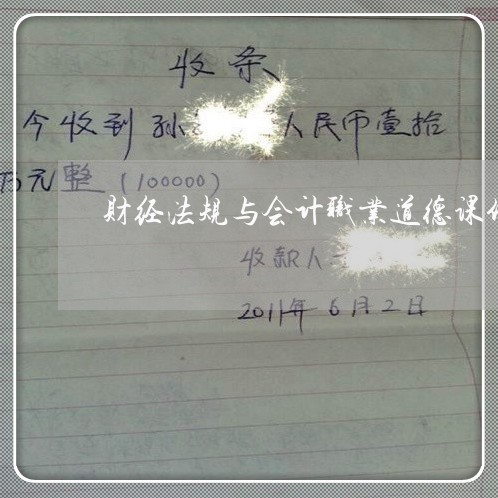 收条
今收到孙 人民币壹拾
万元整（100000）
财经法规与会计職業道德课
收款人
2011年6月2日